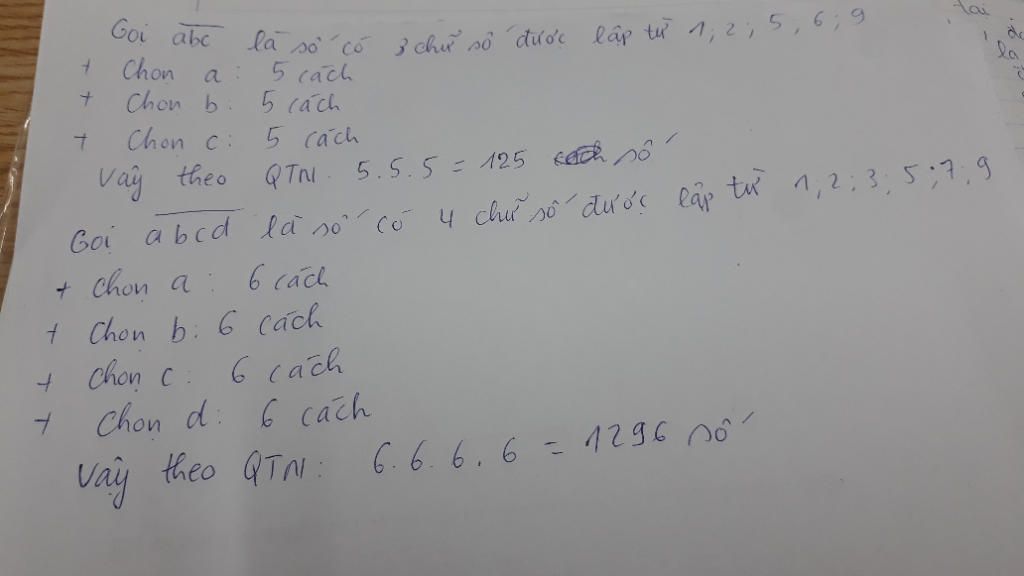 Gọi abc là số có 3 chữ số được lập từ 1; 2; 5; 6; 9
+ Chọn a: 5 cách
+ Chọn b: 5 cách
+ Chọn c: 5 cách
Vậy theo QTN. 5.5.5 = 125 số
Gọi abcd là số có 4 chữ số được lập từ 1; 2; 3; 5; 7; 9
+ Chọn a: 6 cách
+ Chọn b: 6 cách
+ Chọn c: 6 cách
+ Chọn d: 6 cách
Vậy theo QTN: 6.6.6.6 = 1296 số